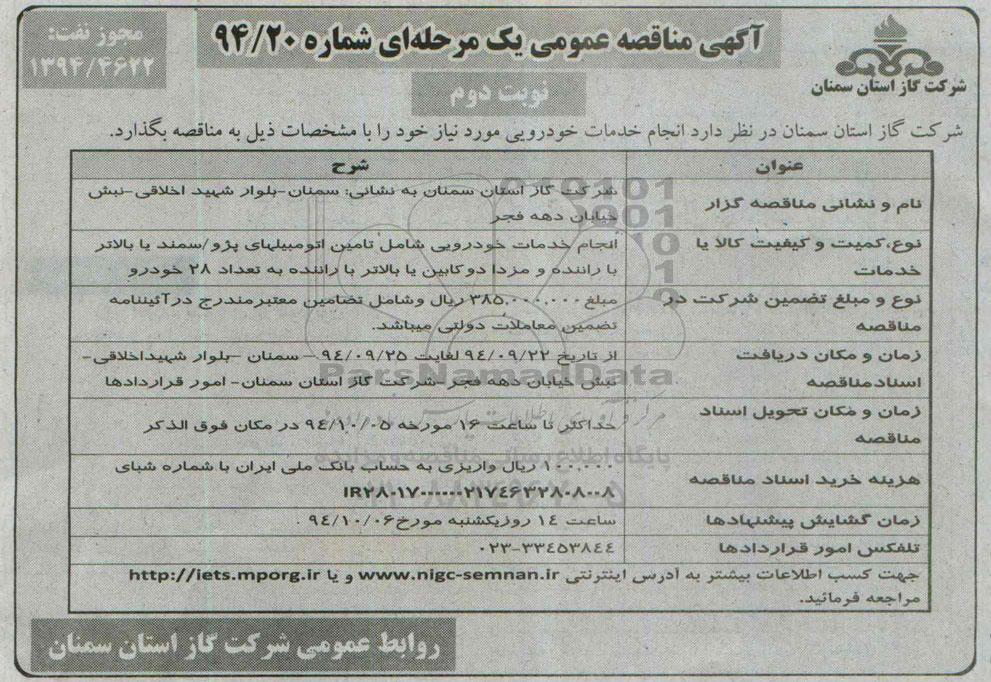 آگهی مناقصه عمومی یک مرحله‌ای شماره ۹۴/۲۰
مجوز نفت:
۱۳۹۴/۴۶۲۲
شرکت گاز استان سمنان
نوبت دوم
شرکت گاز استان سمنان در نظر دارد انجام خدمات خودرویی مورد نیاز خود را با مشخصات ذیل به مناقصه بگذارد.
عنوان شرح
نام و نشانی مناقصه گزار شرکت گاز استان سمنان به نشانی: سمنان-بلوار شهید اخلاقی-نبش
خیابان دهه فجر
نوع،کمیت و کیفیت کالا یا انجام خدمات خودرویی شامل تامین اتومبیلهای پژو/سمند یا بالاتر
خدمات با راننده و مزدا دو کابین یا بالاتر با راننده به تعداد ۲۸ خودرو
نوع و مبلغ تضمین شرکت در مبلغ ۳۸۵,۰۰۰,۰۰۰ ریال وشامل تضامین معتبرمندرج درآئیننامه
مناقصه تضمین معاملات دولتی میباشد.
زمان و مکان دریافت از تاریخ ۹۴/۰۹/۲۲ لغایت ۹۴/۰۹/۲۵ – سمنان -بلوار شهیداخلاقی-
اسنادمناقصه نبش خیابان دهه فجر-شرکت گاز استان سمنان- امور قراردادها
زمان و مکان تحویل اسناد
مناقصه حداکثر تا ساعت ۱۶ مورخه ۹۴/۱۰/۰۵ در مکان فوق الذکر
هزینه خرید اسناد مناقصه ۱۰۰,۰۰۰ ریال واریزی به حساب بانک ملی ایران با شماره شبای
زمان گشایش پیشنهادها ساعت ۱۴ روزیکشنبه مورخ ۹۴/۱۰/۰۶ .
تلفکس امور قراردادها ۰۲۳-۳۳۴۵۳۸۴۴
جهت کسب اطلاعات بیشتر به آدرس اینترنتی www.nigc-semnan.ir و یا http://iets.mporg.ir
مراجعه فرمائید.
روابط عمومی شرکت گاز استان سمنان
ParsNamadData
پایگاه اطلاع رسانی مناقصه و مزایده